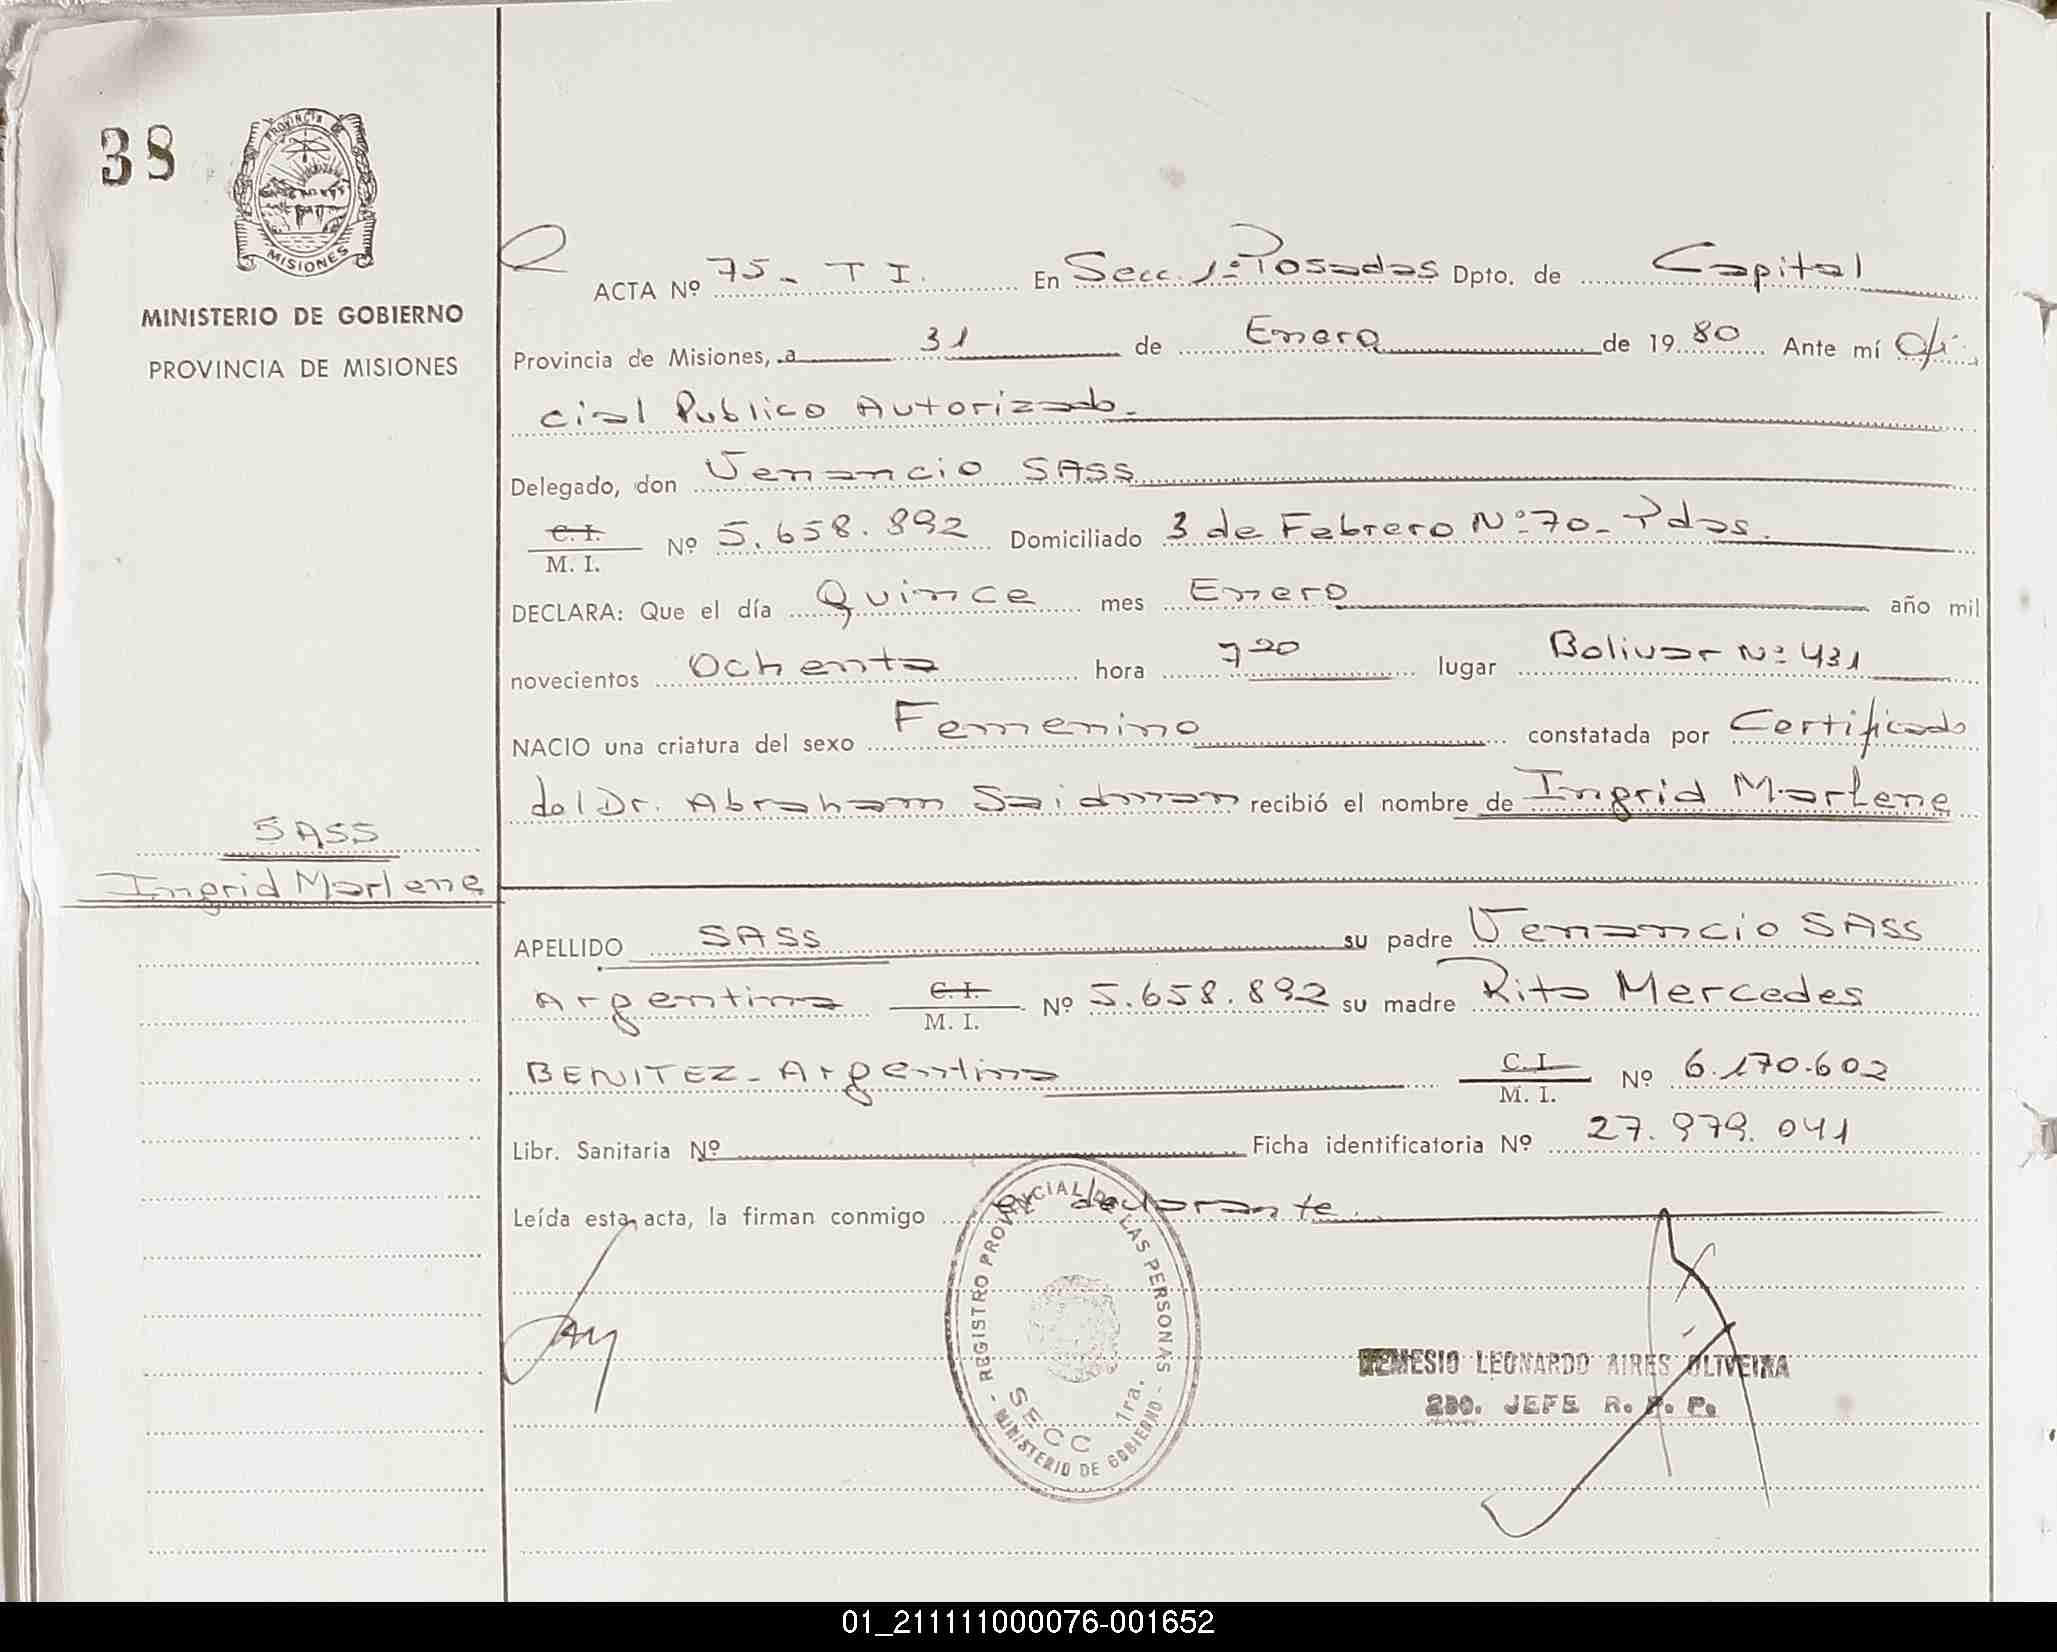 38
PROVINCIA DE
MISIONES
MINISTERIO DE GOBIERNO
PROVINCIA DE MISIONES
SASS
Ingrid Marlene
ACTA Nº 75- T I. En Secc. 1ª Posadas Dpto. de Capital
Provincia de Misiones, a 31 de Enero de 1980 Ante mí Ofi-
cial Publico Autorizado.
Delegado, don Venancio SASS
C. I. / M. I. Nº 5.658.892 Domiciliado 3 de Febrero Nº 70- Pdas.
DECLARA: Que el día Quince mes Enero año mil
novecientos Ochenta hora 7 20 lugar Bolivar Nº 431
NACIO una criatura del sexo Femenino constatada por Certificado
del Dr. Abraham Saidman recibió el nombre de Ingrid Marlene
APELLIDO SASS su padre Venancio SASS
Argentina C. I. / M. I. Nº 5.658.892 su madre Rita Mercedes
BENITEZ- Argentina C. I. / M. I. Nº 6.170.602
Libr. Sanitaria Nº Ficha identificatoria Nº 27.979.041
Leída esta acta, la firman conmigo el declarante.
- REGISTRO PROVINCIAL DE LAS PERSONAS -
SECC 1ra.
MINISTERIO DE GOBIERNO
NEMESIO LEONARDO AIRES OLIVEIRA
2DO. JEFE R. P. P.
01_211111000076-001652